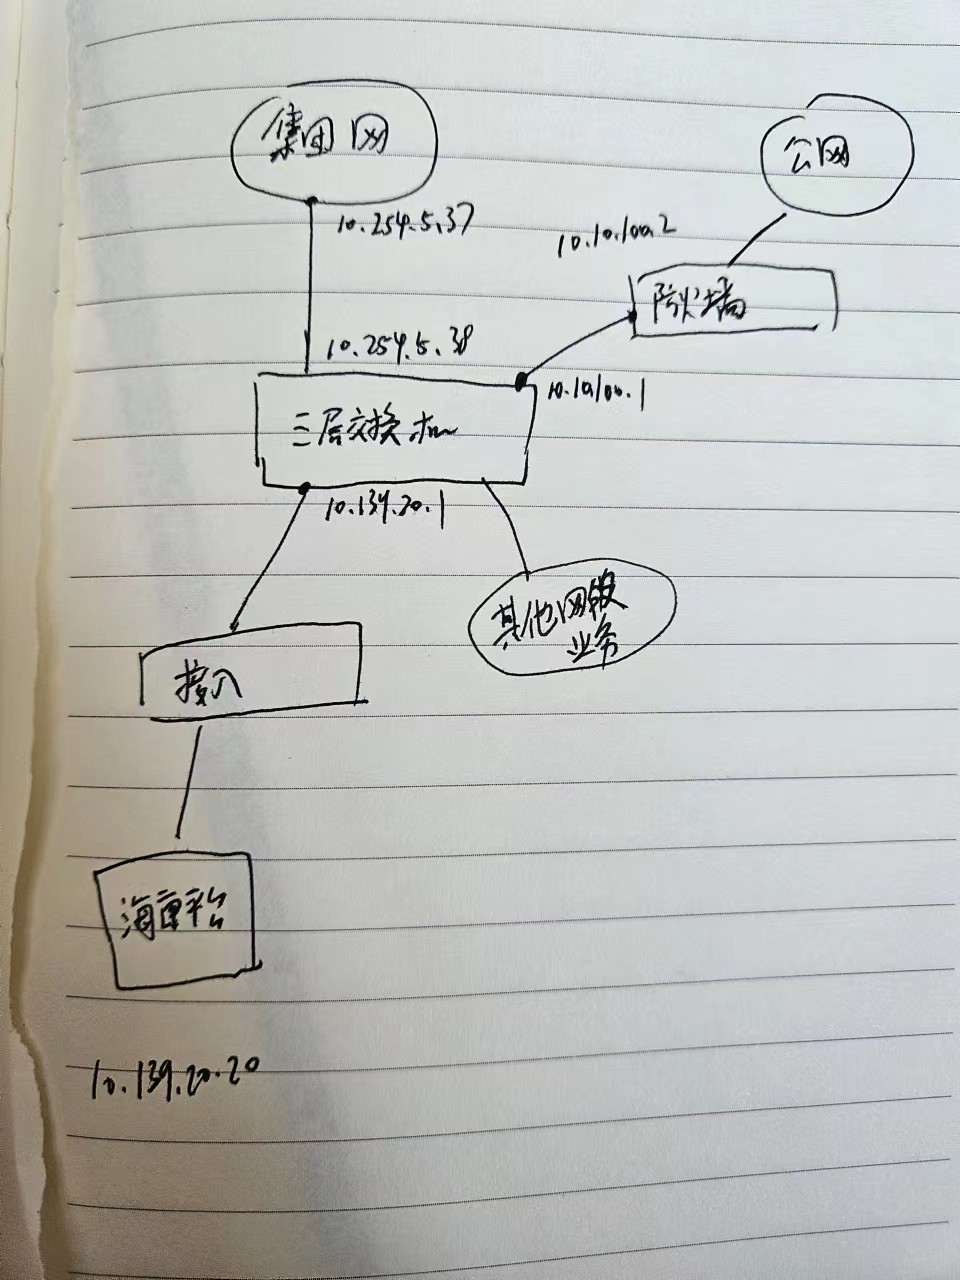 集团网
公网
10.254.5.37
10.10.100.2
防火墙
10.254.5.38
10.10.100.1
三层交换机
10.139.20.1
其他网段
业务
接入
海康平台
10.139.20.20